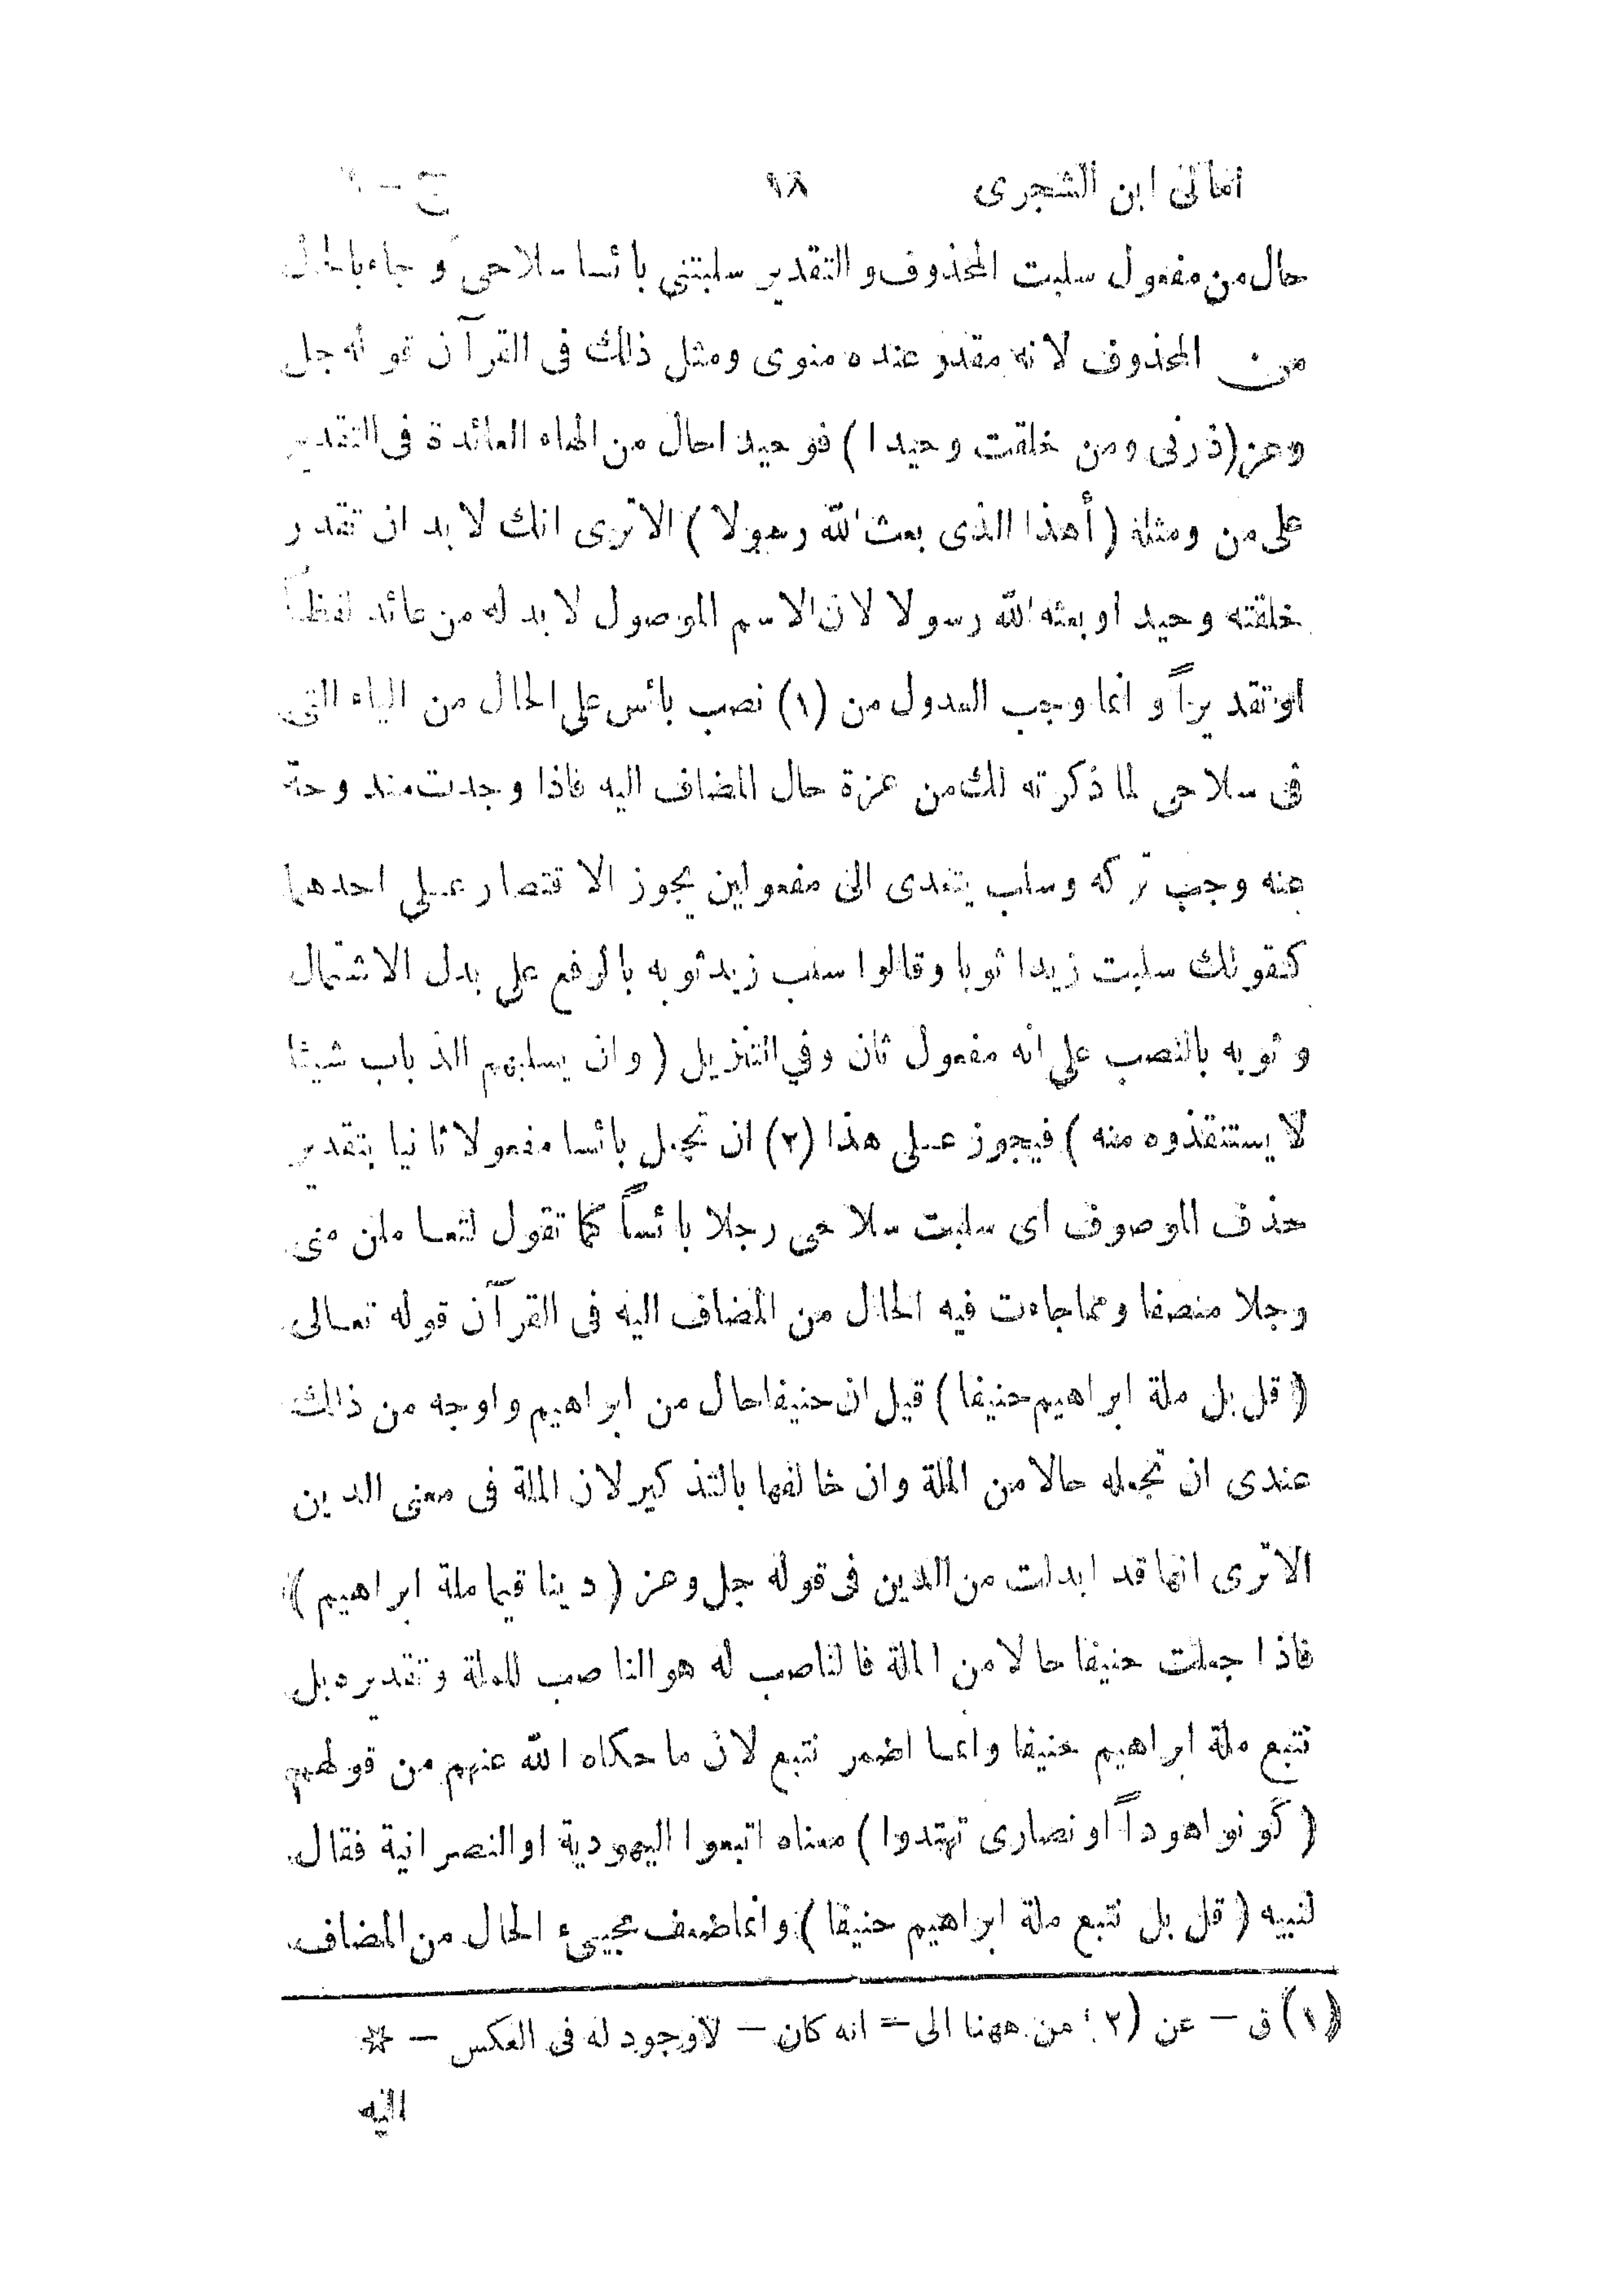 امالى ابن الشجرى ١٨ ج –
حال من مفعول سلبت المحذوف والتقدير سلبتنى بائسا سلاحى وجاء بالحال
من المحذوف لانه مقدر عنده منوى ومثل ذلك فى القرآن قوله جل
وعز (ذرنى ومن خلقت وحيدا) فوحيدا حال من الهاء العائدة فى التقدير
على من ومثله (أهذا الذى بعث الله رسولا) الا ترى انك لا بد ان تقدر
خلقته وحيد او بعثه الله رسولا لان الاسم الموصول لا بد له من عائد لفظاً
او تقديراً وانما وجب العدول من (١) نصب بائس على الحال من الياء التى
فى سلاحى لما ذكرته لك من عزة حال المضاف اليه فاذا وجدت مندوحة
عنه وجب تركه وسلب يتعدى الى مفعولين يجوز الاقتصار على احدهما
كقولك سلبت زيدا ثوبا وقالوا سلب زيد ثوبه بالرفع على بدل الاشتمال
وثوبه بالنصب على انه مفعول ثان وفي التنزيل (وان يسلبهم الذباب شيئا
لا يستنقذوه منه) فيجوز على هذا (٢) ان تجعل بائسا مفعولا ثانيا بتقدير
حذف الموصوف اى سلبت سلاحى رجلا بائساً كما تقول لتعاملن منى
وجلا منصفا ومما جاءت فيه الحال من المضاف اليه فى القرآن قوله تعالى
(قل بل ملة ابراهيم حنيفا) قيل ان حنيفا حال من ابراهيم واوجه من ذلك
عندى ان تجعله حالا من الملة وان خالفها بالتذكير لان الملة فى معنى الدين
الا ترى انها قد ابدلت من الدين فى قوله جل وعز (دينا قيما ملة ابراهيم)
فاذا جعلت حنيفا حالا من الملة فالناصب له هو الناصب للملة وتقديره بل
نتبع ملة ابراهيم حنيفا وانما اضمر نتبع لان ما حكاه الله عنهم من قولهم
(كونوا هوداً او نصارى تهتدوا) معناه اتبعوا اليهودية او النصرانية فقال
لنبيه (قل بل نتبع ملة ابراهيم حنيفا) وانما ضعف مجيىء الحال من المضاف
(١) ق – عن (٢) من ههنا الى = انه كان – لا وجود له فى العكس – ☆
اليه